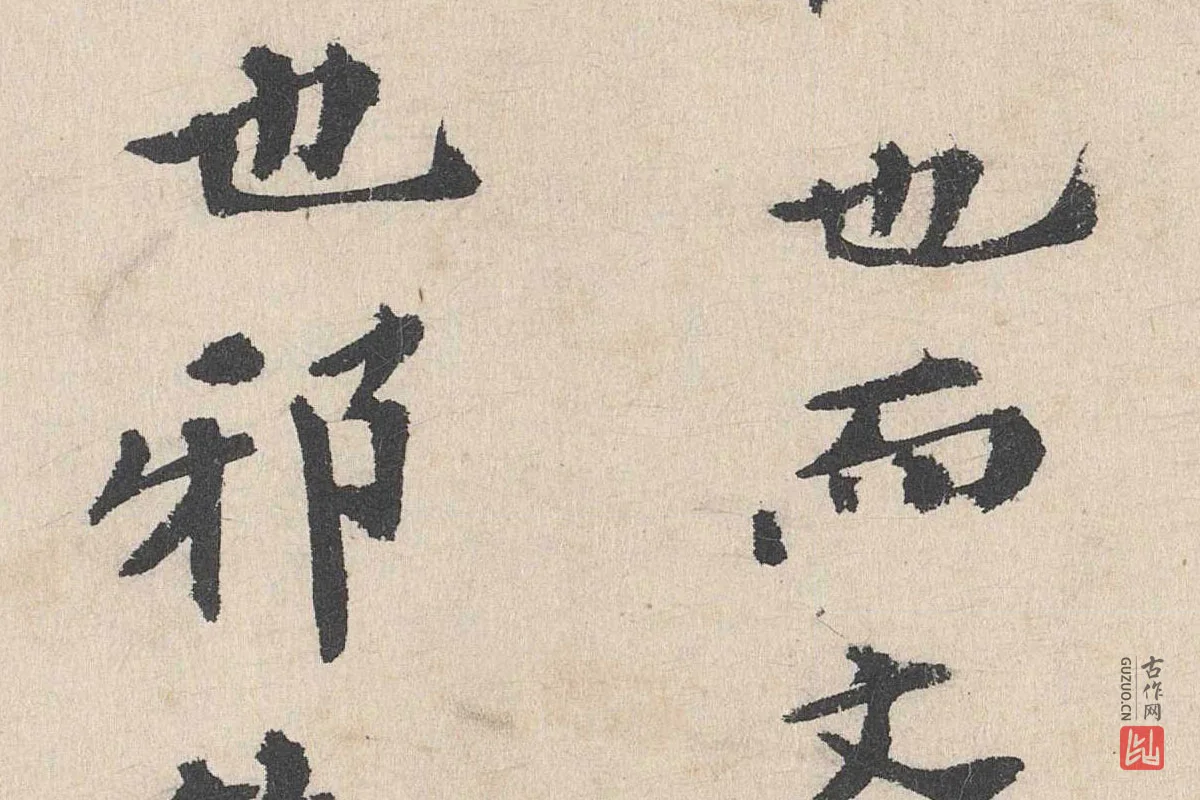 也而文
也邪
古作网
GUZUO.CN